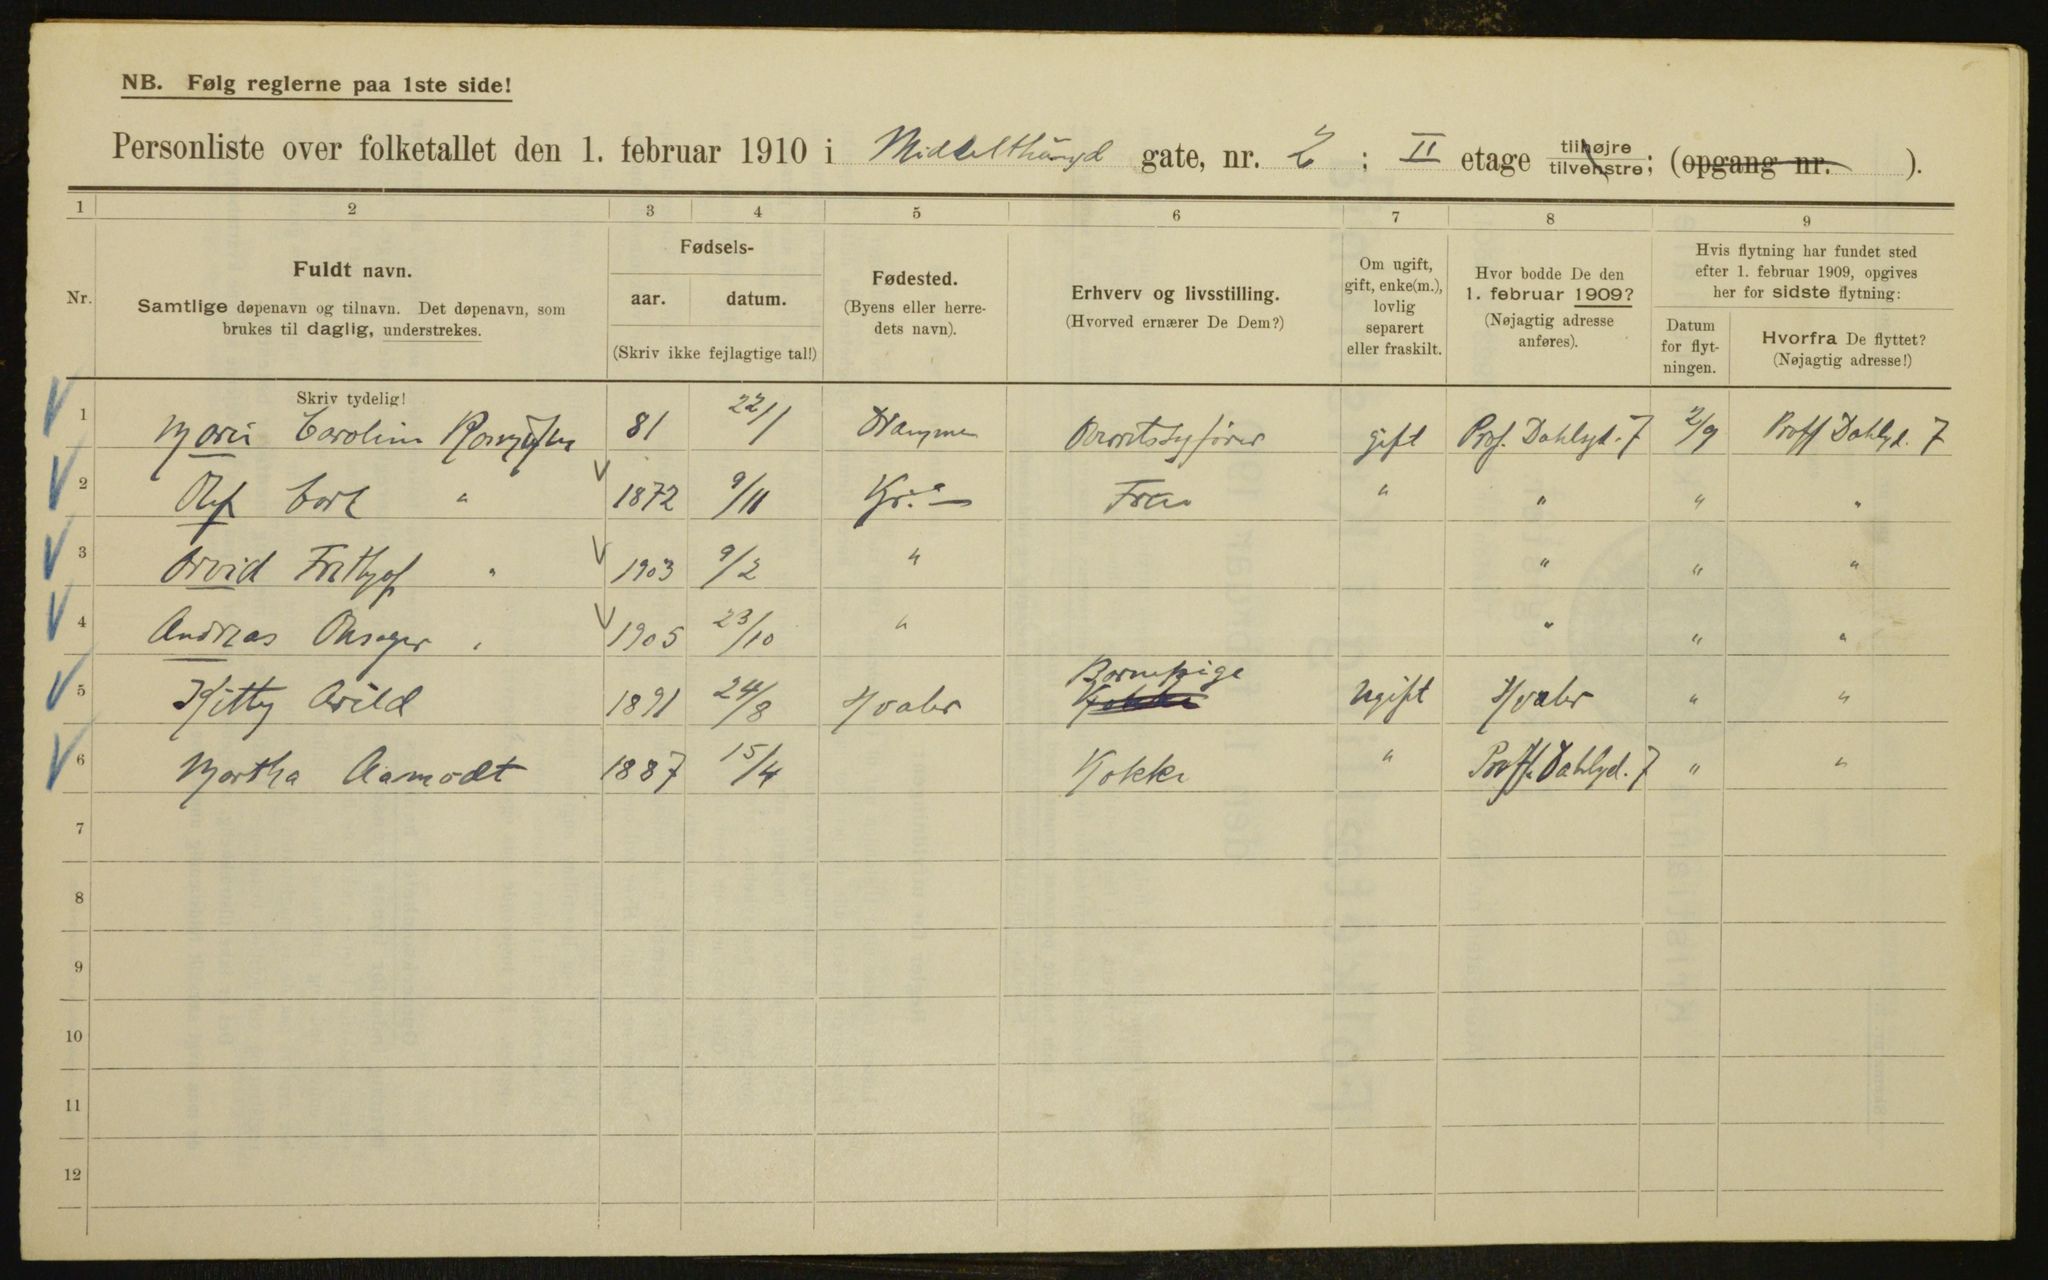 NB. Følg reglerne paa 1ste side!
Personliste over folketallet den 1. februar 1910 i Middelthunsgd gate, nr. 2 ; II etage tilhøjre tilvenstre; (opgang nr. ).
1 2 3 4 5 6 7 8 9
Nr.
Fuldt navn.
Samtlige døpenavn og tilnavn. Det døpenavn, som
brukes til daglig, understrekes.
Skriv tydelig!
Fødsels-
aar. datum.
(Skriv ikke fejlagtige tal!)
Fødested.
(Byens eller herre-
dets navn).
Erhverv og livsstilling.
(Hvorved ernærer De Dem?)
Om ugift,
gift, enke(m.),
lovlig
separert
eller fraskilt.
Hvor bodde De den
1. februar 1909?
(Nøjagtig adresse
anføres).
Hvis flytning har fundet sted
efter 1. februar 1909, opgives
her for sidste flytning:
Datum
for flyt-
ningen.
Hvorfra De flyttet?
(Nøjagtig adresse!)
1 Marie Caroline 81 22/1 Drammen gift Prof. Dahlsgd. 7 2/9 Proff Dahlgd. 7
2 Olaf Carl " 1872 9/11 Kr.a Frue " " " "
3 Arvid Frithjof " 1903 9/2 " " " "
4 Andreas " 1905 23/10 " " " "
5 Kitty Arild 1891 24/8 Hvaler Barnepige Kokke Ugift Hvaler " "
6 Martha Aamodt 1887 15/4 Kokke " Proff. Dahlgd. 7 " "
7
8
9
10
11
12